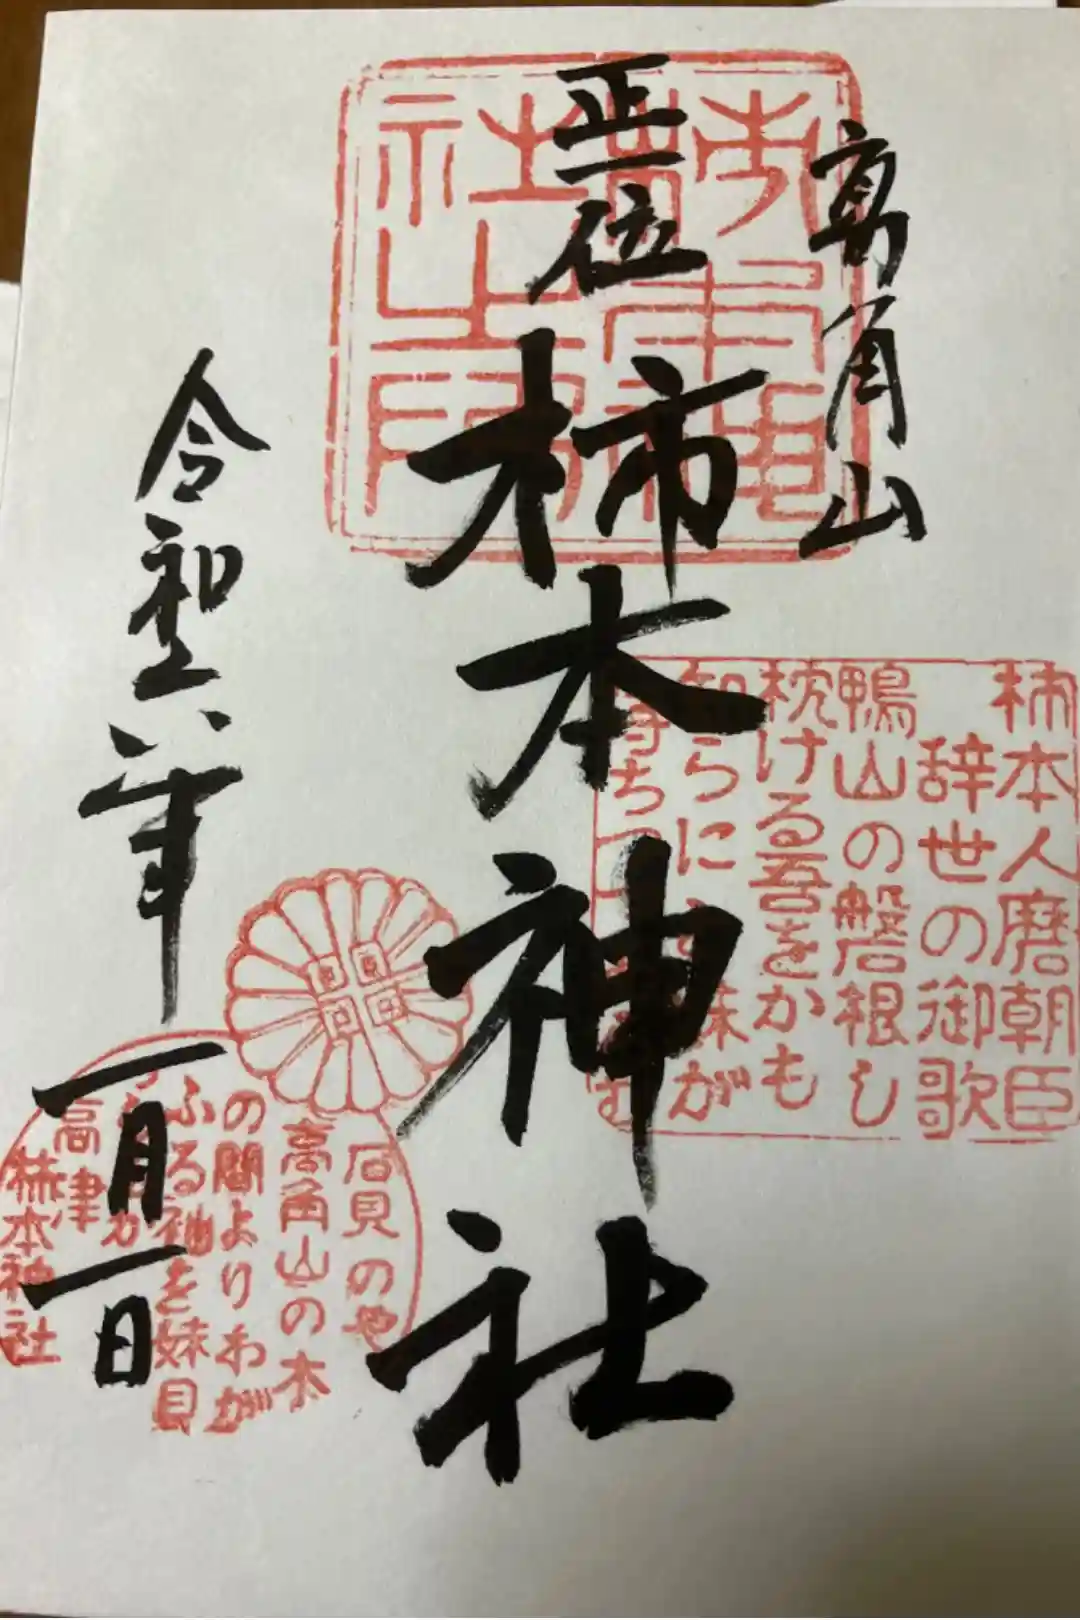 高角山
正一位
柿本神社
令和六年
一月一日
柿本人磨朝臣
辞世の御歌
鴨山の磐根し
枕ける吾をかも
知らに 妹が
待ちつつ
石見のや
高角山の木
の間よりわが
ふる袖を妹見
高津
柿本神社